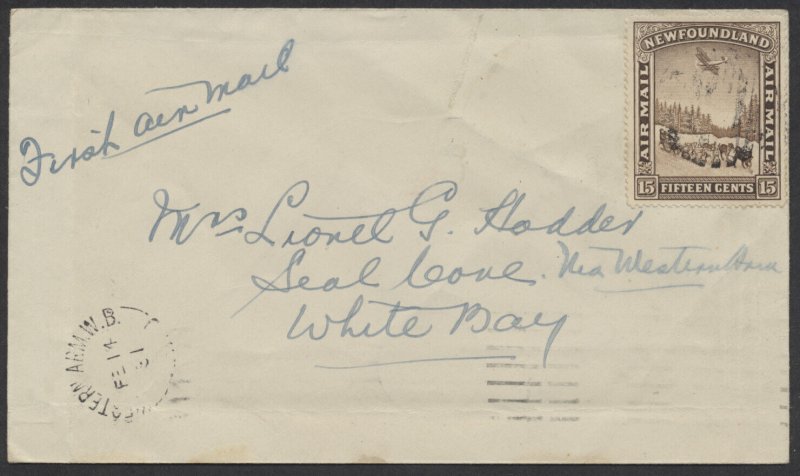 First air mail
NEWFOUNDLAND
AIR MAIL
AIR MAIL
15 FIFTEEN CENTS 15
Mrs Lionel G. Hodder
Seal Cove. Via Western Arm
White Bay
STERN ARM.W.B.
FE 14
31